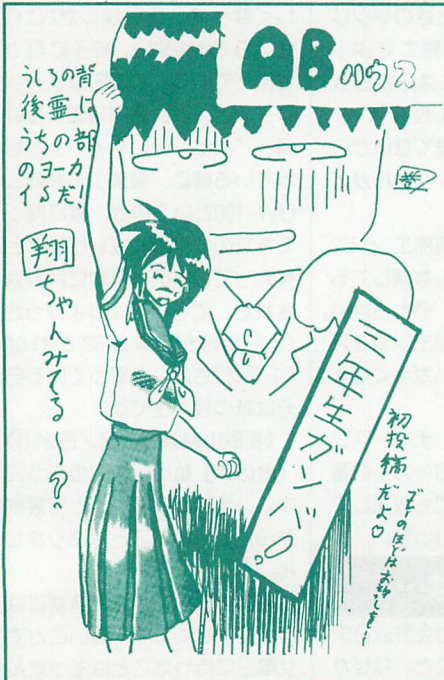 AB
うしろの背
後霊は
うちの部
のヨーカ
イだ!
翔ちゃんみてる〜?
三年生ガンバ!
初投稿だよ♡
のほどはお許しを〜